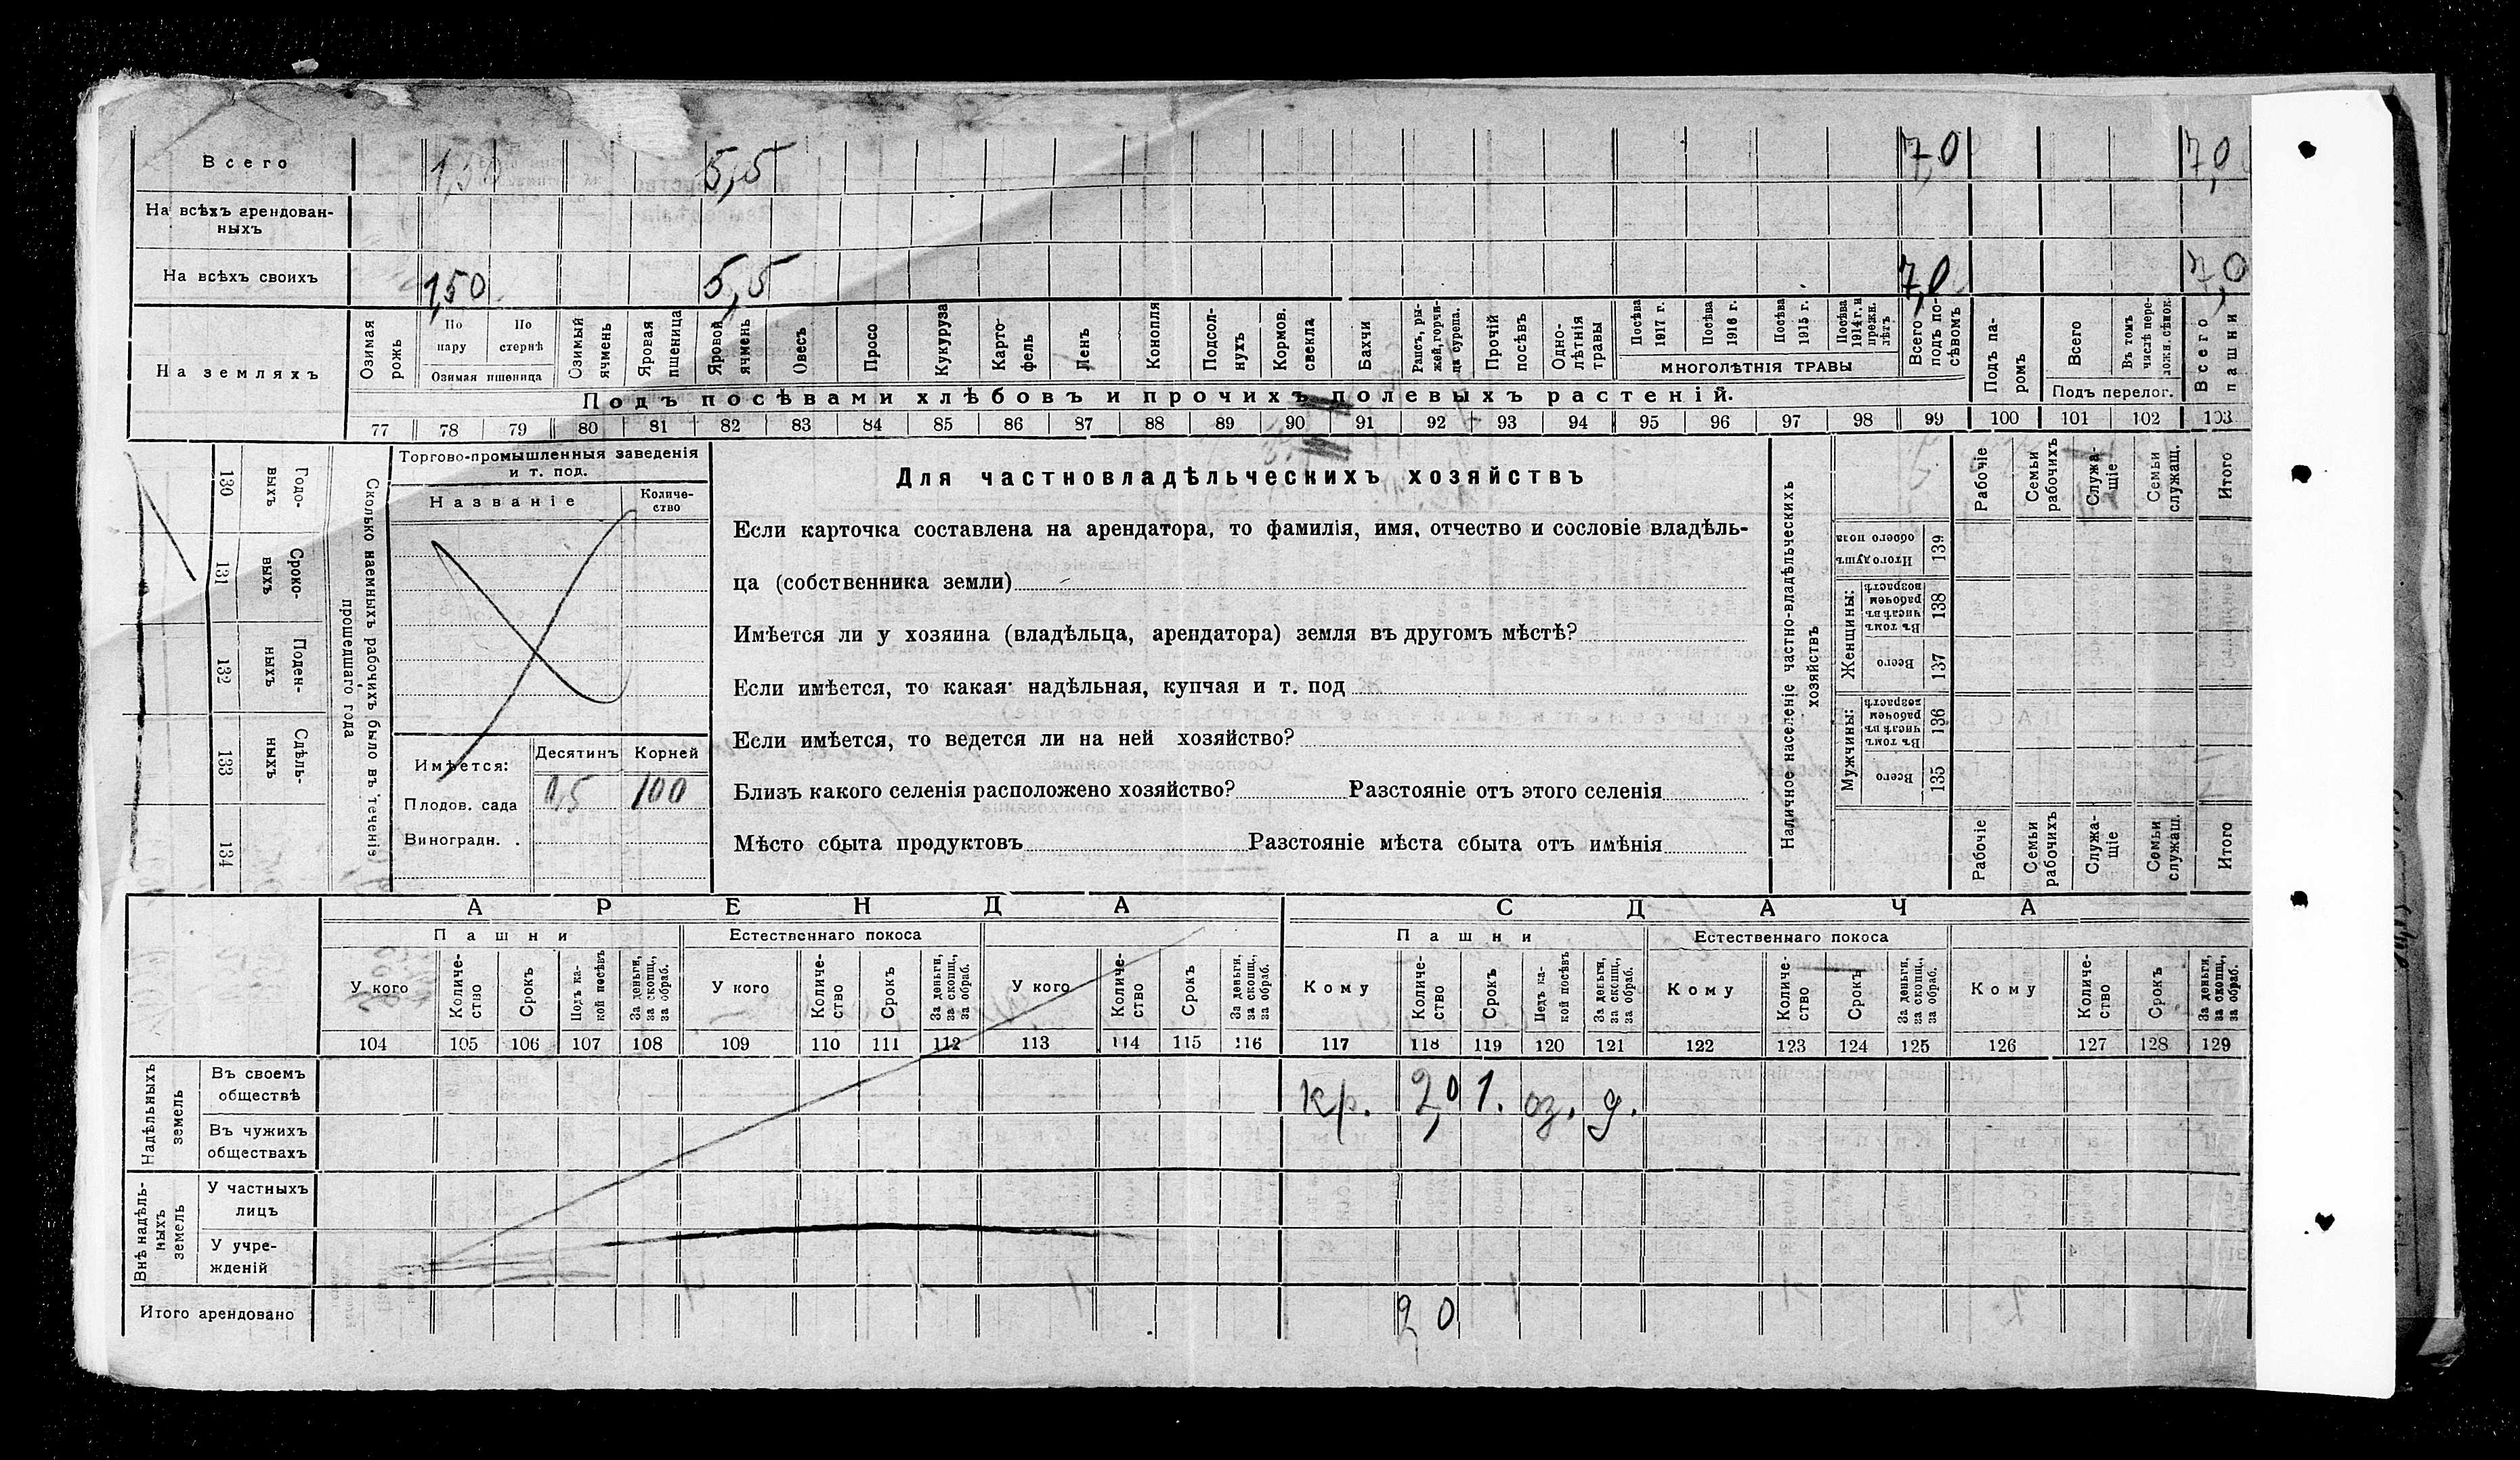 Всего 1,50 5,5 7,0 7,0
На всѣхъ арендован-
ныхъ
На всѣхъ своихъ 1,50 5,5 7,0 7,0
На земляхъ
Озимая рожь
По пару
По стернѣ
Озимая пшеница
Озимый ячмень
Яровая пшеница
Яровой ячмень
Овесъ
Просо
Кукуруза
Карто-
фель
Ленъ
Конопля
Подсол-
нухъ
Кормов. свекла
Бахчи
Рапсъ, ры-
жей, горчи-
ца сурепа.
Прочій посѣвъ
Одно-
лѣтнія
травы
Посѣва 1917 г.
Посѣва 1916 г.
Посѣва 1915 г.
Посѣва 1914 г. и прежн. лѣтъ
МНОГОЛѢТНІЯ ТРАВЫ
Всего подъ по-
сѣвомъ
Подъ па-
ромъ
Всего
Въ томъ числѣ пере-
ложн. сѣнок.
Подъ перелог.
Всего пашни
Подъ посѣвами хлѣбовъ и прочихъ полевыхъ растеній.
77 78 79 80 81 82 83 84 85 86 87 88 89 90 91 92 93 94 95 96 97 98 99 100 101 102 103
130 Годо-
выхъ
131 Сроко-
выхъ
132 Поден-
ныхъ
133 Сдѣль-
ныхъ
134
Сколько наемныхъ рабочихъ было въ теченіе
прошедшаго года
Торгово-промышленныя заведенія
и т. под.
Названіе
Количе-
ство
Имѣется: Десятинъ Корней
Плодов. сада 0,5 100
Виноградн.
Для частновладѣльческихъ хозяйствъ
Если карточка составлена на арендатора, то фамилія, имя, отчество и сословіе владѣль-
ца (собственника земли)
Имѣется ли у хозяина (владѣльца, арендатора) земля въ другомъ мѣстѣ?
Если имѣется, то какая: надѣльная, купчая и т. под
Если имѣется, то ведется ли на ней хозяйство?
Близъ какого селенія расположено хозяйство? Разстояніе отъ этого селенія
Мѣсто сбыта продуктовъ Разстояніе мѣста сбыта отъ имѣнія
Наличное населеніе частно-владѣльческихъ
хозяйствъ
Рабочіе
Семьи рабочихъ
Служа-
щіе
Семьи служащ.
Итого
Итого душъ обоего пола 139
Женщины:
Въ томъ числѣ въ рабочемъ возрастѣ 138
Всего 137
Мужчины:
Въ томъ числѣ въ рабочемъ возрастѣ 136
Всего 135
Рабочіе
Семьи рабочихъ
Служа-
щіе
Семьи служащ.
Итого
АРЕНДА СДАЧА
Пашни Естественнаго покоса Пашни Естественнаго покоса
У кого
Количе-
ство
Срокъ
Подъ ка-
кой посѣвъ
За деньги, за скопщ., за обраб.
У кого
Количе-
ство
Срокъ
За деньги, за скопщ., за обраб.
У кого
Количе-
ство
Срокъ
За деньги, за скопщ., за обраб.
Кому
Количе-
ство
Срокъ
Подъ ка-
кой посѣвъ
За деньги, за скопщ., за обраб.
Кому
Количе-
ство
Срокъ
За деньги, за скопщ., за обраб.
Кому
Количе-
ство
Срокъ
За деньги, за скопщ., за обраб.
104 105 106 107 108 109 110 111 112 113 114 115 116 117 118 119 120 121 122 123 124 125 126 127 128 129
Надѣльныхъ земель
Въ своемъ
обществѣ
кр. 2,0 1. оз. д.
Въ чужихъ
обществахъ
Внѣ надѣль-
ныхъ
земель
У частныхъ
лицъ
У учре-
жденій
Итого арендовано 2 0